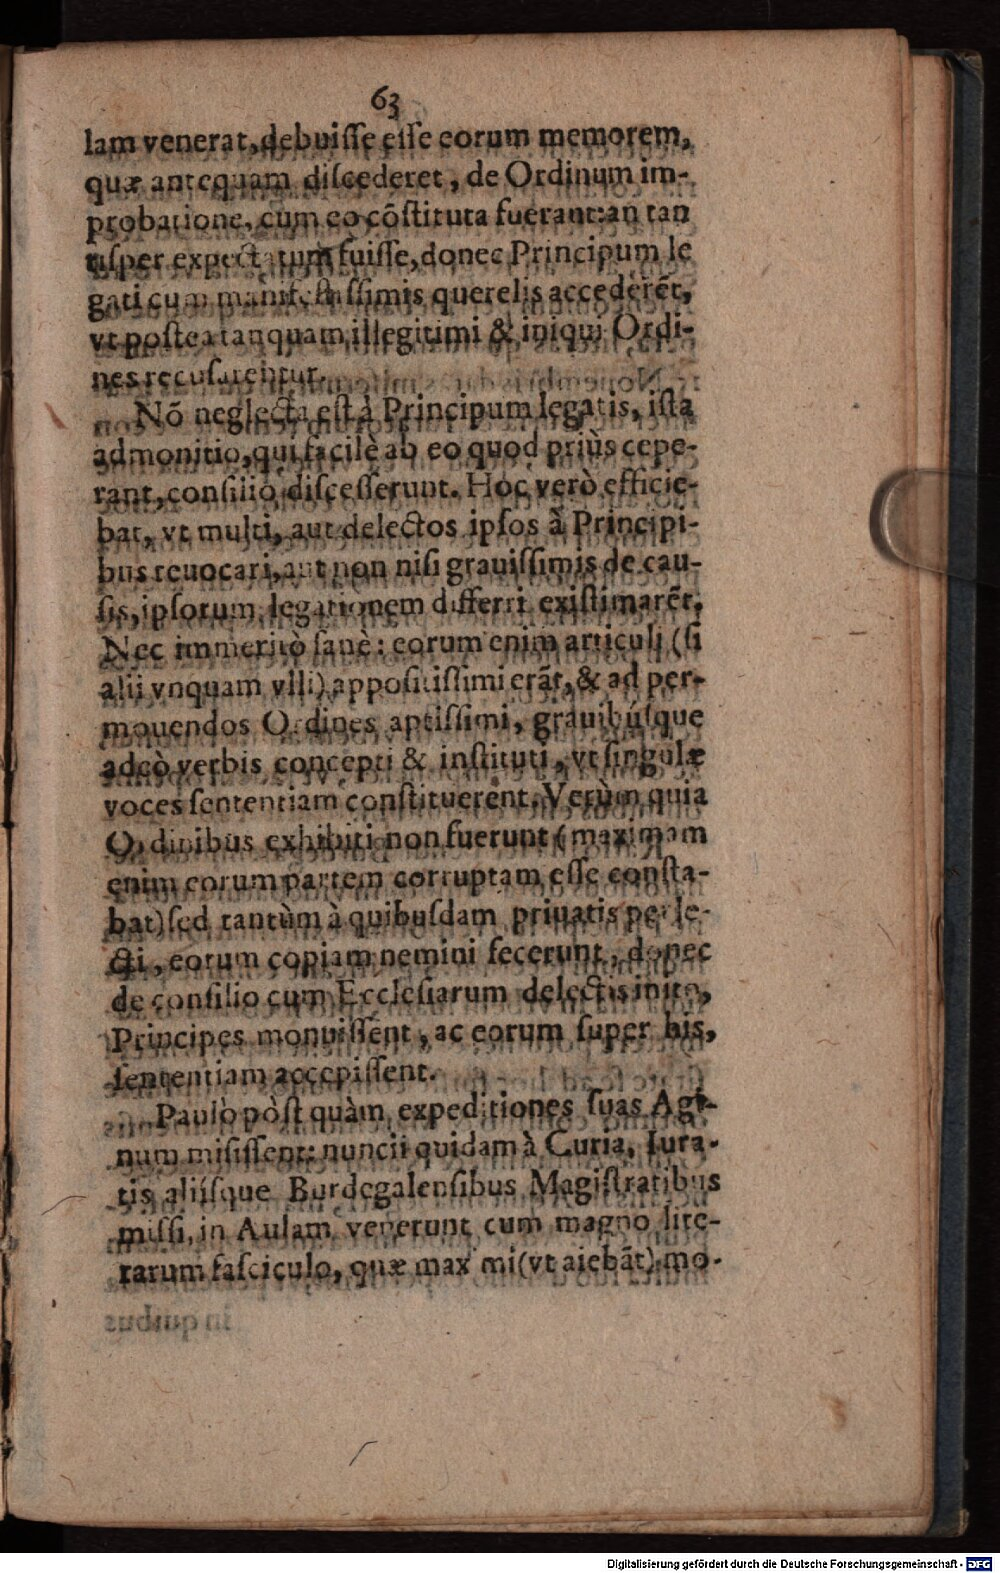 63
lam venerat, debuiſſe eſſe eorum memorem,
quæ antequam diſcederet, de Ordinum im-
probatione, cum eo cōſtituta fuerant: an tan
tiſper expectatum fuiſſe, donec Principum le
gati cum manifeſtiſſimis querelis accederēt,
vt poſtea tanquam illegitimi & iniqui Ordi-
nes recuſarentur.
Nō neglecta eſt à Principum legatis, iſta
admonitio, qui facilè ab eo quod priùs cepe-
rant, conſilio diſceſſerunt. Hoc verò efficie-
bat, vt multi, aut delectos ipſos à Principi-
bus reuocari, aut non niſi grauiſſimis de cau-
ſis, ipſorum legationem differri exiſtimarēt.
Nec immeritò ſanè: eorum enim articuli (ſi
alii vnquam vlli) appoſitiſſimi erāt, & ad per-
mouendos Ordines aptiſſimi, grauibúſque
adeò verbis concepti & inſtituti, vt ſingulæ
voces ſententiam conſtituerent. Verùm quia
Ordinibus exhibiti non fuerunt (maximam
enim eorum partem corruptam eſſe conſta-
bat) ſed tantùm à quibuſdam priuatis perle-
cti, eorum copiam nemini fecerunt, donec
de conſilio cum Eccleſiarum delectis inito,
Principes monuiſſent, ac eorum ſuper his,
ſententiam accepiſſent.
Paulò pòſt quàm expeditiones ſuas Agi-
num miſiſſent: nuncii quidam à Curia, Iura-
tis aliíſque Burdegalenſibus Magiſtratibus
miſſi, in Aulam venerunt cum magno lite-
rarum faſciculo, quæ maximi (vt aiebāt) mo-
Digitalisierung gefördert durch die Deutsche Forschungsgemeinschaft - DFG